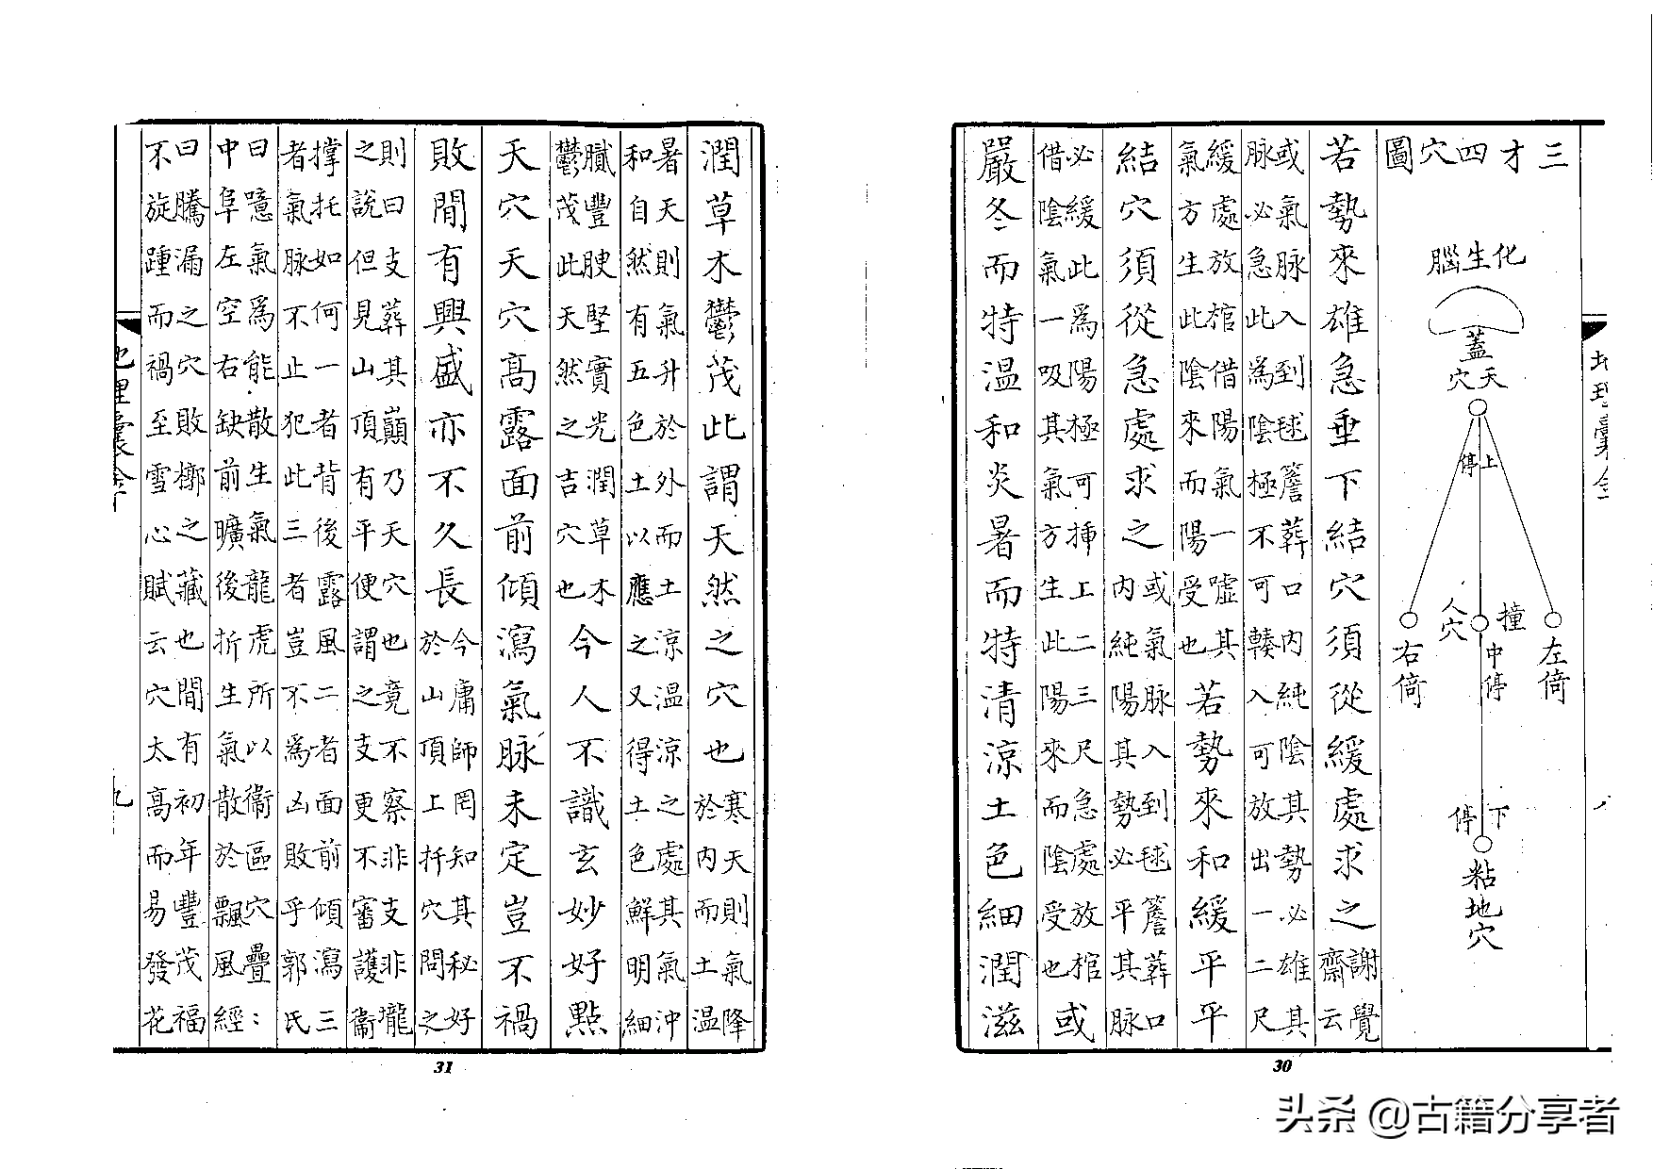 三才四穴圖
化生腦
蓋
天穴
上停
撞
人穴
中停
左倚
右倚
下停
粘地穴
若勢來雄急垂下結穴須從緩處求之謝覺齋云
或氣脉入到毬簷葬口内純陰其勢必雄其
脉必急此為陰極不可轃入可放出一二尺
緩處放棺借陽氣一噓其
氣方生此陰來而陽受也若勢來和緩平平
結穴須從急處求之或氣脉入到毬簷葬口
内純陽其勢必平其脉
必緩此為陽極可揷上二三尺急處放棺
借陰氣一吸其氣方生此陽來而陰受也或
嚴冬而特温和炎暑而特清涼土色細潤滋
30
潤草木鬱茂此謂天然之穴也寒天則氣降
於内而土温
暑天則氣升於外而土涼温涼之處其氣沖
和自然有五色土以應之又得土色鮮明細
膩豐腴堅實光潤草木
鬱茂此天然之吉穴也今人不識玄妙好點
天穴天穴高露面前傾瀉氣脉未定豈不禍
敗間有興盛亦不久長今庸師罔知其秘好
於山頂上扦穴問之
則曰支葬其巔乃天穴也竟不察非支非壠
之說但見山頂有平便謂之支更不審護衞
撑托如何一者背後露風二者面前傾瀉三
者氣脉不止犯此三者豈不為凶敗乎郭氏
曰噫氣為能散生氣龍虎所以衞區穴疊:
中阜左空右缺前曠後折生氣散於飄風經
曰騰漏之穴敗槨之藏也間有初年豐茂福
不旋踵而禍至雪心賦云穴太高而易發花
地理囊金
九
31
头条 @古籍分享者